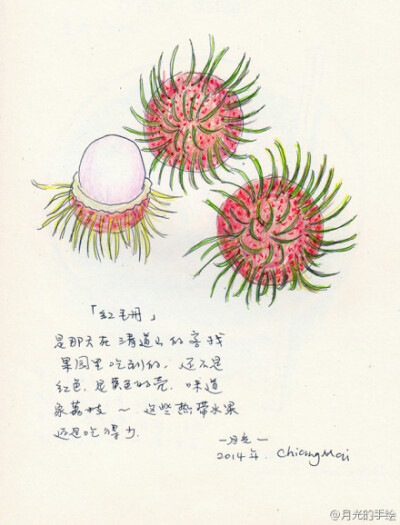 「红毛丹」
是那天在清道山的客栈
果园里吃到的，还不是
红色，是黄色的壳，味道
象荔枝～这些热带水果
还是吃得少.
—月光—
2014年. Chiang Mai
@月光的手绘